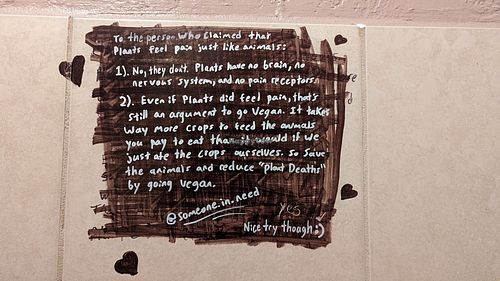 To the person who claimed that
Plants feel pain just like animals:
1). No, they don't. Plants have no brain, no
nervous system, and no pain receptors.
2). Even if Plants did feel pain, that's
still an argument to go vegan. It takes
way more crops to feed the animals
you pay to eat than it would if we
just ate the crops ourselves. So save
the animals and reduce "Plant Deaths"
by going vegan.
@someone.in.need
yes
Nice try though :)